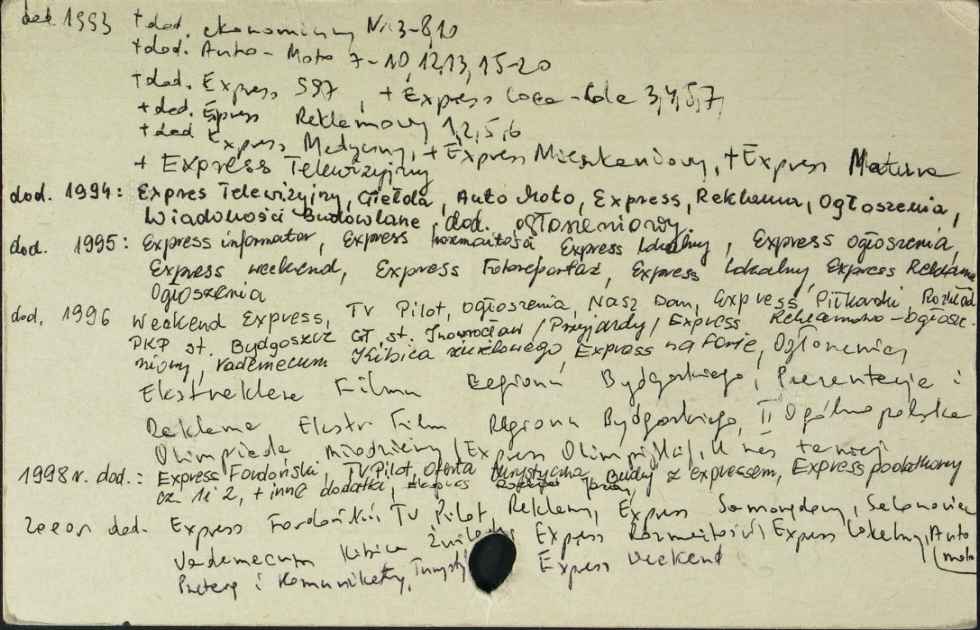 dod. 1993 + dod. ekonomiczny Nr. 3-8, 10
+ dod. Auto - Moto 7-10, 12, 13, 15-20
+ dod. Express 997, + Express Coca-Cola 3, 4, 5, 7,
+ dod. Express Reklamowy 1, 2, 5, 6
+ dod Express Medyczny, + Express Mieszkaniowy, + Express Matura
+ Express Telewizyjny
dod. 1994: Expres Telewizyjny, Giełda, Auto Moto, Express, Reklama, Ogłoszenia,
Wiadomości Budowlane, dod. ogłoszeniowy
dod. 1995: Express informator, Express rozmaitości Express Lokalny, Express ogłoszenia,
Express weekend, Express Fotoreportaż, Express Lokalny, Express Reklama
Ogłoszenia
dod. 1996 Weekend Express, TV Pilot, ogłoszenia, Nasz Dom, Express Piłkarski, Rozkład
PKP st. Bydgoszcz Gł, st. Inowrocław / Przyjazdy / Express Reklamowo-Ogłosze-
niowy, Vademecum Kibica żużlowego, Express na Forie,
Ekstraklasa Filmu Regionu Bydgoskiego, Prezentacje i
Reklama Ekstr Film Regionu Bydgoskiego, II Ogólnopolska
Olimpiada młodzieży / Express Olimpijski /, U nas taniej
1998 r. dod.: Express Fordoński, TV Pilot, Oferta turystyczna, Buduj z expressem, Express podatkowy
cz. 1 i 2, + inne dodatki,
2000 r dod. Express Fordoński, TV Pilot, Reklamy, Express Samorządowy,
Vademecum Kibica Express Rozmaitości, Express Lokalny, Auto
moto
Przetargi i Komunikaty, Express Weekend